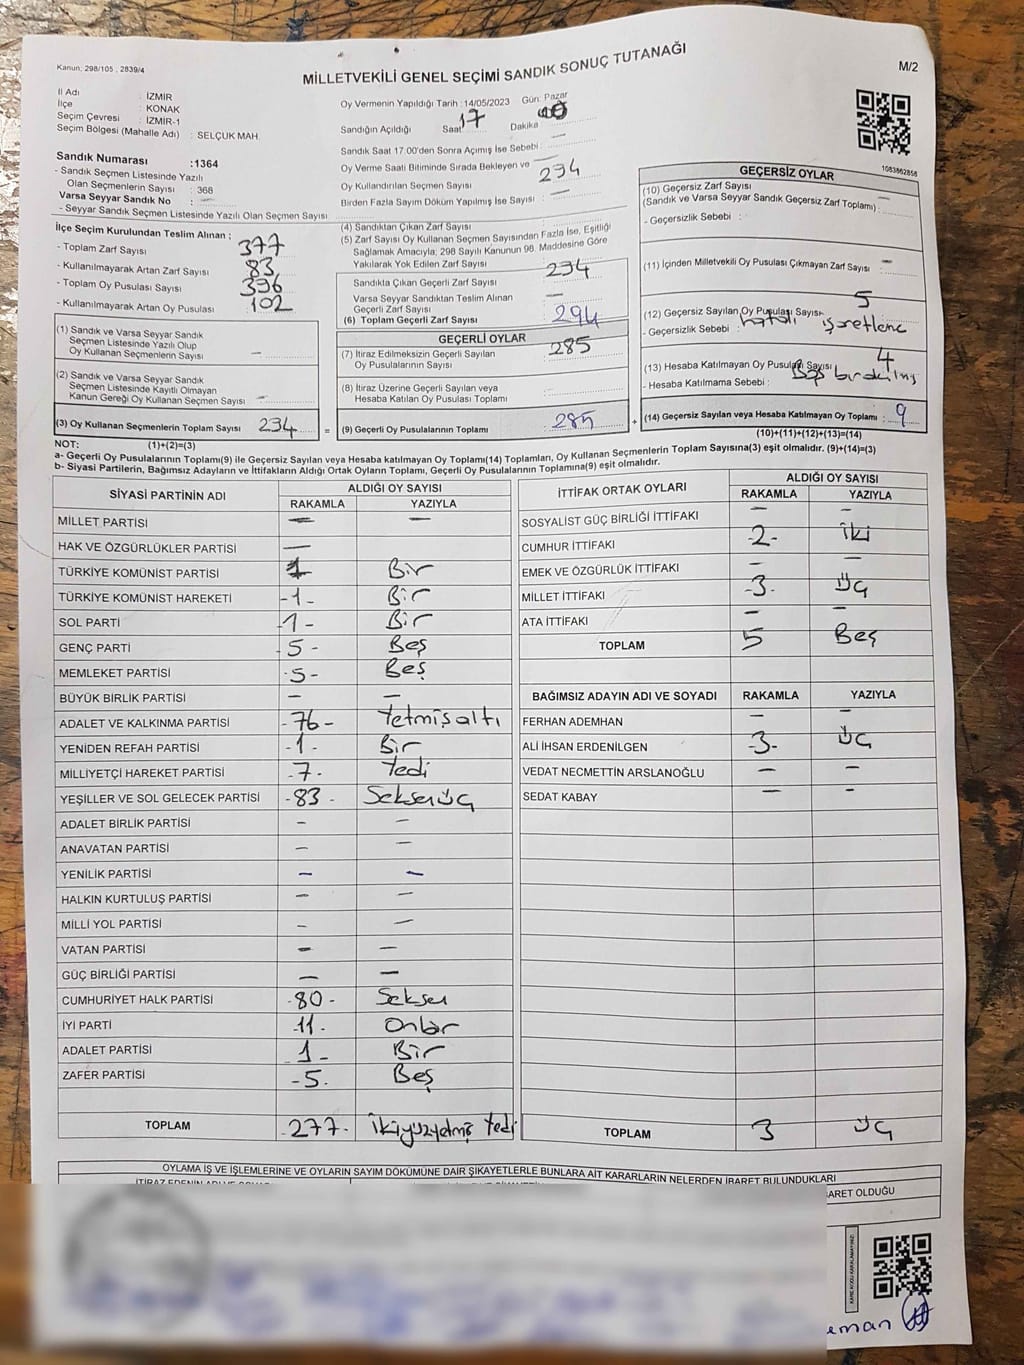 Kanun: 298/105 , 2839/4
MİLLETVEKİLİ GENEL SEÇİMİ SANDIK SONUÇ TUTANAĞI
M/2
İl Adı : İZMİR
İlçe : KONAK
Seçim Çevresi : İZMİR-1
Seçim Bölgesi (Mahalle Adı) : SELÇUK MAH.
Sandık Numarası :1364
- Sandık Seçmen Listesinde Yazılı
Olan Seçmenlerin Sayısı : 368
Varsa Seyyar Sandık No : —
- Seyyar Sandık Seçmen Listesinde Yazılı Olan Seçmen Sayısı :
Oy Vermenin Yapıldığı Tarih : 14/05/2023 Gün: Pazar
Sandığın Açıldığı Saat 17 Dakika
Sandık Saat 17:00'den Sonra Açımış İse Sebebi : —
Oy Verme Saati Bitiminde Sırada Bekleyen ve —
Oy Kullandırılan Seçmen Sayısı 294
Birden Fazla Sayım Döküm Yapılmış İse Sayısı : —
1083862858
İlçe Seçim Kurulundan Teslim Alınan :
- Toplam Zarf Sayısı : 377
- Kullanılmayarak Artan Zarf Sayısı : 83
- Toplam Oy Pusulası Sayısı : 396
- Kullanılmayarak Artan Oy Pusulası : 102
(1) Sandık ve Varsa Seyyar Sandık
Seçmen Listesinde Yazılı Olup
Oy Kullanan Seçmenlerin Sayısı : —
(2) Sandık ve Varsa Seyyar Sandık
Seçmen Listesinde Kayıtlı Olmayan
Kanun Gereği Oy Kullanan Seçmen Sayısı : —
(3) Oy Kullanan Seçmenlerin Toplam Sayısı : 294
(4) Sandıktan Çıkan Zarf Sayısı :
(5) Zarf Sayısı Oy Kullanan Seçmen Sayısından Fazla İse, Eşitliği
Sağlamak Amacıyla, 298 Sayılı Kanunun 98. Maddesine Göre
Yakılarak Yok Edilen Zarf Sayısı
Sandıkta Çıkan Geçerli Zarf Sayısı 294
Varsa Seyyar Sandıktan Teslim Alınan
Geçerli Zarf Sayısı : —
(6) Toplam Geçerli Zarf Sayısı : 294
GEÇERLİ OYLAR
(7) İtiraz Edilmeksizin Geçerli Sayılan
Oy Pusulalarının Sayısı 285
(8) İtiraz Üzerine Geçerli Sayılan veya
Hesaba Katılan Oy Pusulası Toplamı :
= (9) Geçerli Oy Pusulalarının Toplamı : 285 +
GEÇERSİZ OYLAR
(10) Geçersiz Zarf Sayısı
(Sandık ve Varsa Seyyar Sandık Geçersiz Zarf Toplamı) : —
- Geçersizlik Sebebi :
(11) İçinden Milletvekili Oy Pusulası Çıkmayan Zarf Sayısı : —
(12) Geçersiz Sayılan Oy Pusulası Sayısı 5
- Geçersizlik Sebebi : hatalı işaretleme
(13) Hesaba Katılmayan Oy Pusulası Sayısı 4
- Hesaba Katılmama Sebebi : Boş bırakılmış
(14) Geçersiz Sayılan veya Hesaba Katılmayan Oy Toplamı : 9
(10)+(11)+(12)+(13)=(14)
NOT: (1)+(2)=(3)
a- Geçerli Oy Pusulalarının Toplamı(9) ile Geçersiz Sayılan veya Hesaba katılmayan Oy Toplamı(14) Toplamları, Oy Kullanan Seçmenlerin Toplam Sayısına(3) eşit olmalıdır. (9)+(14)=(3)
b- Siyasi Partilerin, Bağımsız Adayların ve İttifakların Aldığı Ortak Oyların Toplamı, Geçerli Oy Pusulalarının Toplamına(9) eşit olmalıdır.
SİYASİ PARTİNİN ADI ALDIĞI OY SAYISI
RAKAMLA YAZIYLA
MİLLET PARTİSİ — —
HAK VE ÖZGÜRLÜKLER PARTİSİ —
TÜRKİYE KOMÜNİST PARTİSİ 1 Bir
TÜRKİYE KOMÜNİST HAREKETİ -1- Bir
SOL PARTİ -1- Bir
GENÇ PARTİ -5- Beş
MEMLEKET PARTİSİ -5- Beş
BÜYÜK BİRLİK PARTİSİ — —
ADALET VE KALKINMA PARTİSİ -76- Yetmişaltı
YENİDEN REFAH PARTİSİ -1- Bir
MİLLİYETÇİ HAREKET PARTİSİ -7- Yedi
YEŞİLLER VE SOL GELECEK PARTİSİ -83- Seksenüç
ADALET BİRLİK PARTİSİ — —
ANAVATAN PARTİSİ — —
YENİLİK PARTİSİ — —
HALKIN KURTULUŞ PARTİSİ — —
MİLLİ YOL PARTİSİ — —
VATAN PARTİSİ — —
GÜÇ BİRLİĞİ PARTİSİ — —
CUMHURİYET HALK PARTİSİ -80- Seksen
İYİ PARTİ -11- Onbir
ADALET PARTİSİ -1- Bir
ZAFER PARTİSİ -5- Beş
TOPLAM -277- ikiyüzyetmiş Yedi
İTTİFAK ORTAK OYLARI ALDIĞI OY SAYISI
RAKAMLA YAZIYLA
SOSYALİST GÜÇ BİRLİĞİ İTTİFAKI — —
CUMHUR İTTİFAKI -2- İki
EMEK VE ÖZGÜRLÜK İTTİFAKI — —
MİLLET İTTİFAKI -3- Üç
ATA İTTİFAKI — —
TOPLAM 5 Beş
BAĞIMSIZ ADAYIN ADI VE SOYADI RAKAMLA YAZIYLA
FERHAN ADEMHAN — —
ALİ İHSAN ERDENİLGEN -3- Üç
VEDAT NECMETTİN ARSLANOĞLU — —
SEDAT KABAY — —
TOPLAM 3 Üç
OYLAMA İŞ VE İŞLEMLERİNE VE OYLARIN SAYIM DÖKÜMÜNE DAİR ŞİKAYETLERLE BUNLARA AİT KARARLARIN NELERDEN İBARET BULUNDUKLARI
BARET OLDUĞU
eman